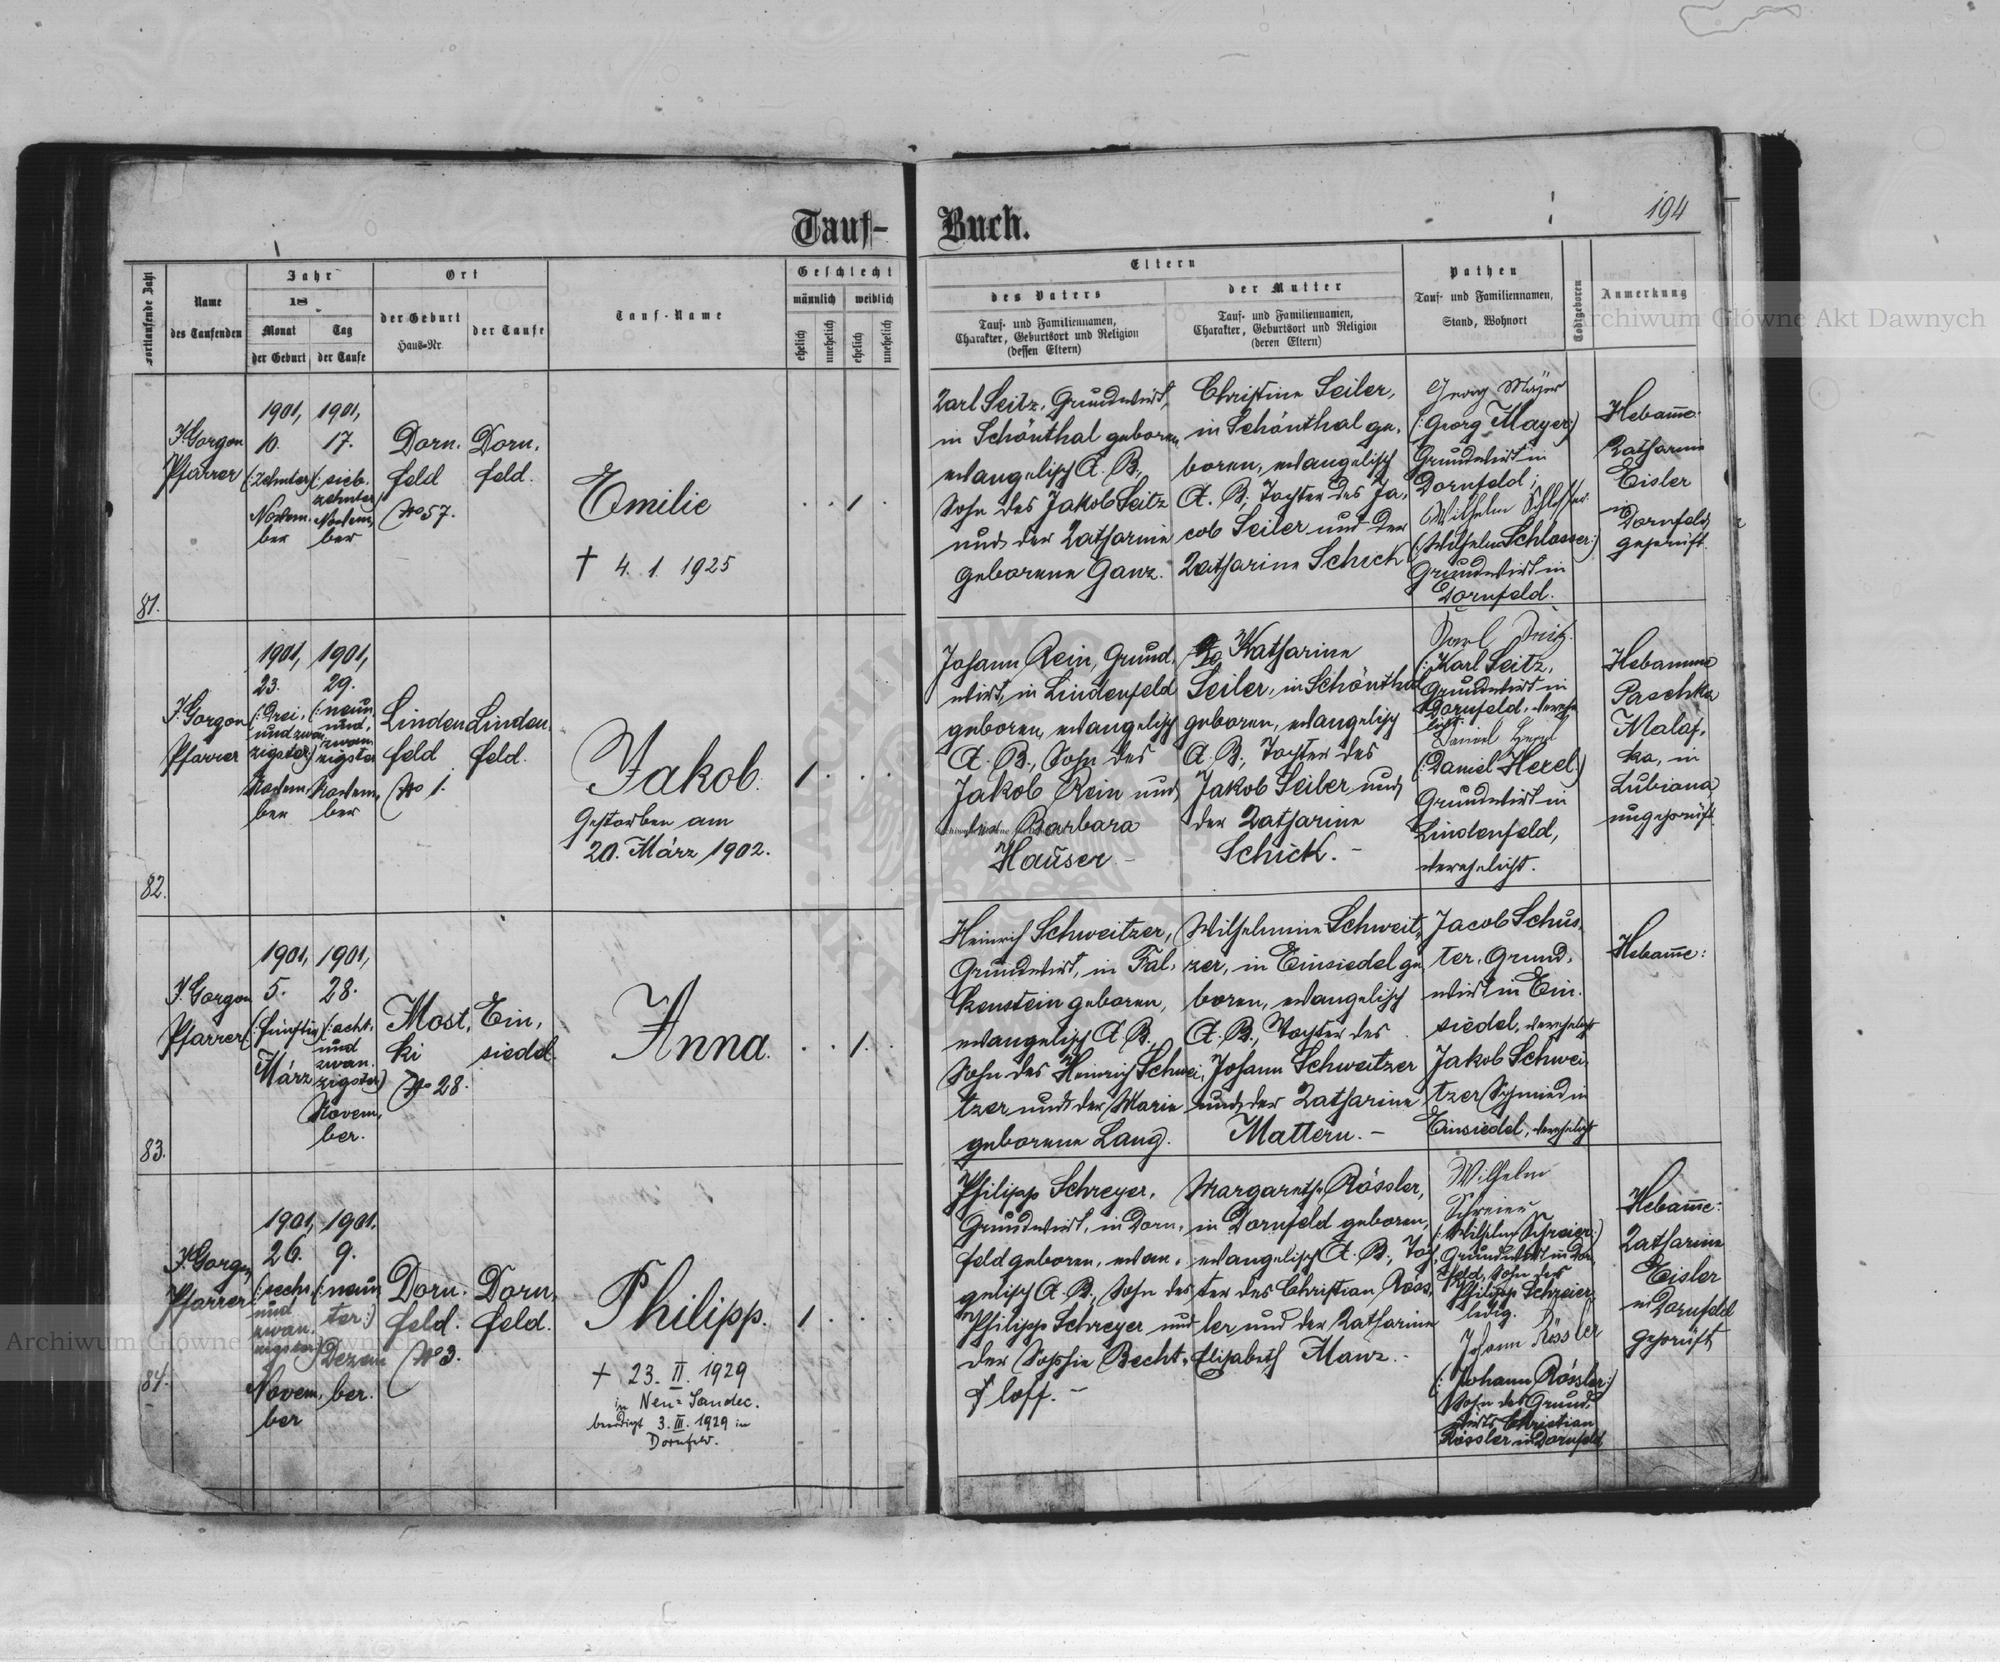 Tauf-Buch.
194
fortlaufende Zahl
Name
des Taufenden
Jahr
18
Monat
der Geburt
Tag
der Taufe
Ort
der Geburt
Haus-Nr.
der Taufe
Tauf-Name
Geschlecht
männlich
weiblich
ehelich
unehelich
ehelich
unehelich
Eltern
des Vaters
Tauf- und Familiennamen,
Charakter, Geburtsort und Religion
(dessen Eltern)
der Mutter
Tauf- und Familiennamen,
Charakter, Geburtsort und Religion
(deren Eltern)
Pathen
Tauf- und Familiennamen,
Stand, Wohnort
Todtgeboren
Anmerkung
81.
J. Gorgon
Pfarrer
1901,
10.
(:zehnter:)
Novem-
ber
1901,
17.
(:sieb-
zehnter:)
Novem-
ber
Dorn-
feld
No 57.
Dorn-
feld.
Emilie
† 4. 1. 1925
1
Karl Seitz, Grundwirt,
in Schönthal geboren,
evangelisch A. B.,
Sohn des Jakob Seitz
und der Katharine
geborene Ganz.
Christine Seiler,
in Schönthal ge-
boren, evangelisch
A. B., Tochter des Ja-
cob Seiler und der
Katharine Schick
Georg Mayer
(:Georg Mayer:)
Grundwirt in
Dornfeld;
Wilhelm Schlosser
(:Wilhelm Schlosser:)
Grundwirt in
Dornfeld.
Hebamme:
Katharine
Eisler
in
Dornfeld,
geprüft.
82.
J. Gorgon
Pfarrer
1901,
23.
(:drei-
und zwan-
zigster:)
Novem-
ber
1901,
29.
(:neun
und-
zwan-
zigster
Novem-
ber
Linden-
feld
No 1.
Linden-
feld.
Jakob.
Gestorben am
20. März 1902.
1
Johann Rein, Grund-
wirt, in Lindenfeld
geboren, evangelisch
A. B., Sohn des
Jakob Rein und
der Barbara
Hauser –
Katharine
Seiler, in Schönthal
geboren, evangelisch
A. B., Tochter des
Jakob Seiler und
der Katharine
Schick. –
Karl Seitz
(:Karl Seitz,
Grundwirt in
Dornfeld, verehe-
licht.
Daniel Hexel
(:Daniel Hexel:)
Grundwirt in
Lindenfeld,
verehelicht.
Hebamme
Paschka
Malaf-
ka, in
Lubiana
ungeprüft.
83.
J. Gorgon
Pfarrer
1901,
5.
(:fünfter:)
März
1901,
28.
(:acht-
und
zwan-
zigster:)
Novem-
ber.
Most-
ki
No 28.
Ein-
siedel.
Anna.
1
Heinrich Schweitzer,
Grundwirt, in Fal-
kenstein geboren,
evangelisch A. B.,
Sohn des Heinrich Schwei-
tzer und der Marie
geborene Lang.
Wilhelmine Schweit-
zer, in Einsiedel ge-
boren, evangelisch
A. B., Tochter des
Johann Schweitzer
und der Katharine
Mattern. –
Jacob Schus-
ter, Grund-
wirt in Ein-
siedel, verehelicht
Jakob Schwei-
tzer Schmied in
Einsiedel, verehelicht
Hebamme:
84.
J. Gorgon
Pfarrer
1901,
26.
(:sechs-
und
zwan-
zigster:)
Novem-
ber
1901.
9.
(:neun-
ter:)
Dezem-
ber.
Dorn-
feld.
No 3.
Dorn-
feld.
Philipp.
† 23. II. 1929
in Neu-Sandec.
beerdigt 3. III. 1929 in
Dornfeld.
1
Philipp Schreyer,
Grundwirt, in Dorn-
feld geboren, evan-
gelisch A. B., Sohn des
Philipp Schreyer und
der Sophie Becht-
loff. –
Margarethe Rössler,
in Dornfeld geboren,
evangelisch A. B., Toch-
ter des Christian Röss-
ler und der Katharine
Elisabeth Manz. –
Wilhelm
Schreier
(:Wilhelm Schreier:)
Grundwirt in Dorn-
feld, Sohn des
Philipp Schreier,
ledig.
Johann Rössler
(:Johann Rössler:)
Sohn des Grund-
wirts Christian
Rössler in Dornfeld
Hebamme:
Katharine
Eisler
in Dornfeld
geprüft
Archiwum Główne Akt Dawnych
Archiwum Główne Akt Dawnych